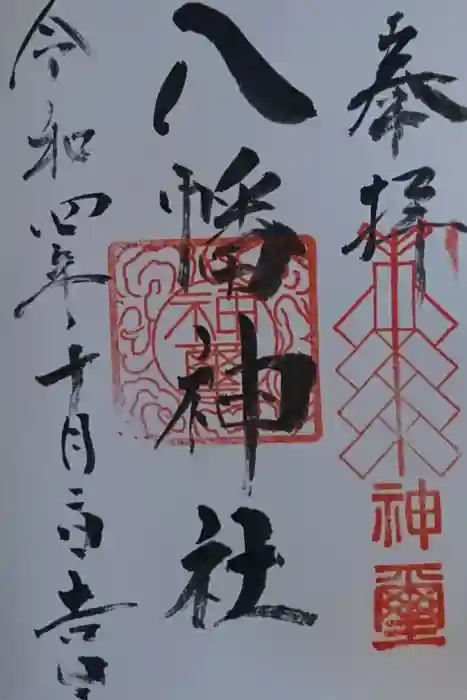 奉拝
神璽
八幡神社
神璽
令和四年十月 吉日